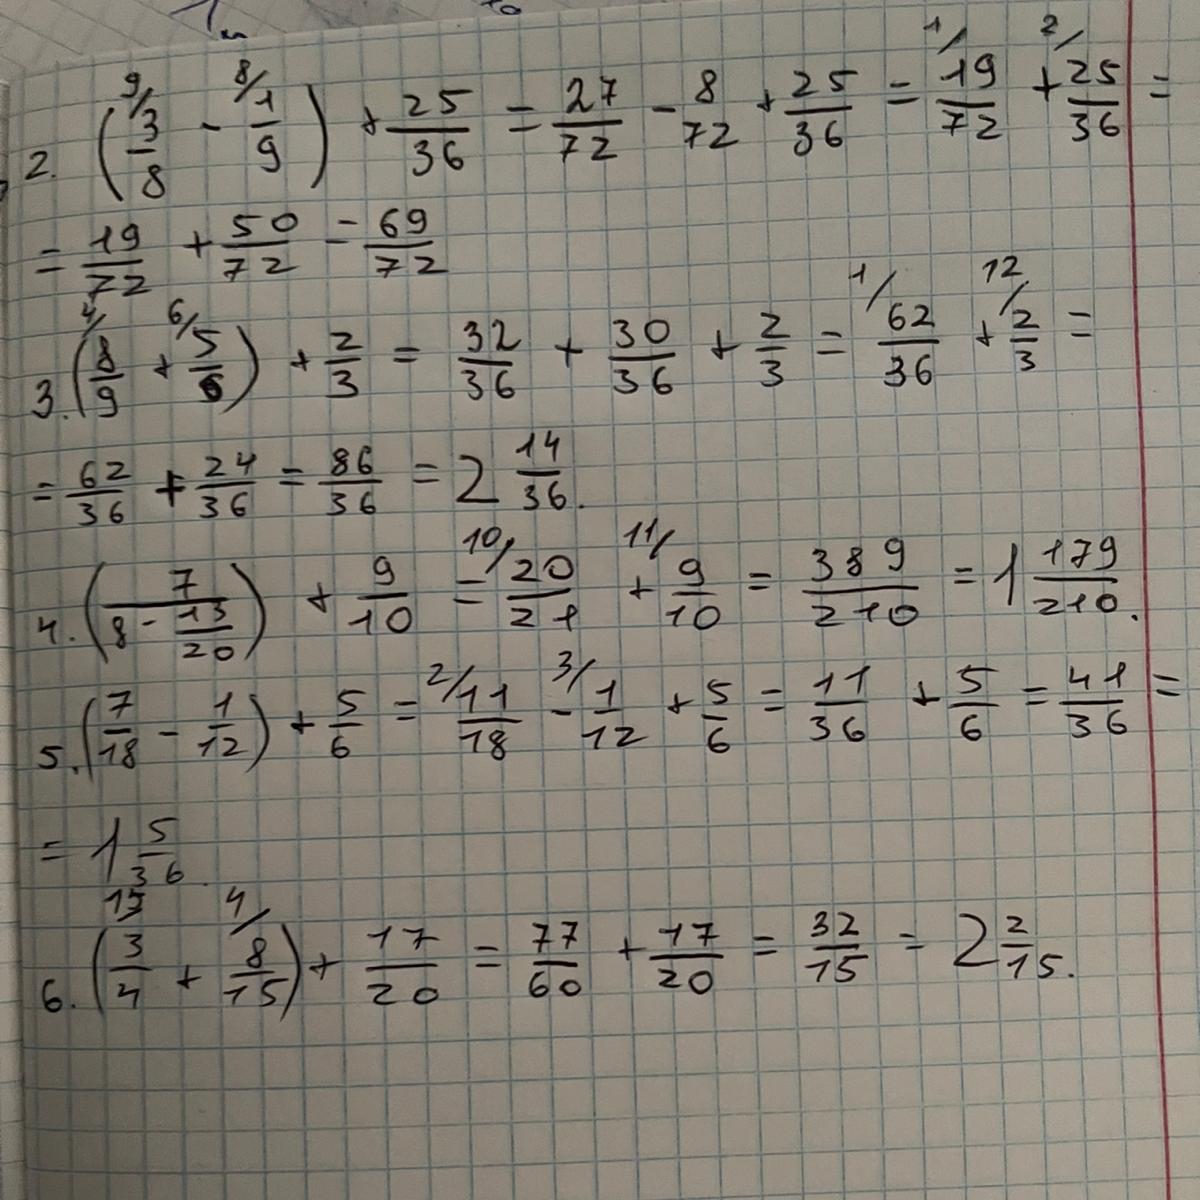 2. (9/ 3/8 - 8/ 1/9) + 25/36 = 27/72 - 8/72 + 25/36 = 1/ 19/72 + 2/ 25/36 =
= 19/72 + 50/72 = 69/72
3. (4/ 8/9 + 6/ 5/6) + 2/3 = 32/36 + 30/36 + 2/3 = 1/ 62/36 + 12/ 2/3 =
= 62/36 + 24/36 = 86/36 = 2 14/36.
4. (7/(8 - 13/20)) + 9/10 = 10/ 20/21 + 11/ 9/10 = 389/210 = 1 179/210.
5. (7/18 - 1/12) + 5/6 = 2/ 11/18 - 3/ 1/12 + 5/6 = 11/36 + 5/6 = 41/36 =
= 1 5/36.
6. (3/4 + 4/ 8/15) + 17/20 = 77/60 + 17/20 = 32/15 = 2 2/15.